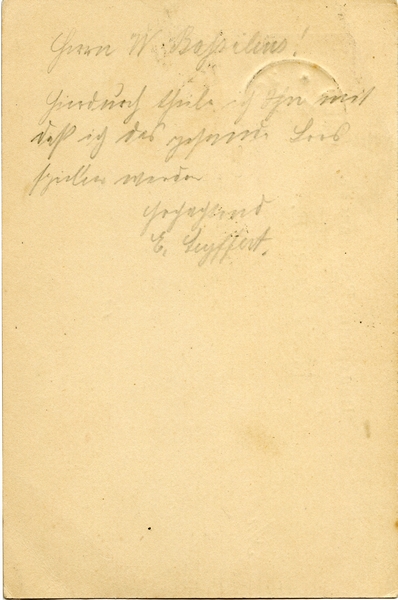 Herrn W. Basilius!
hierdurch theile ich Ihn mit
daß ich das ganze Loos
spielen werde
Hochachtend
E. Seyffert.